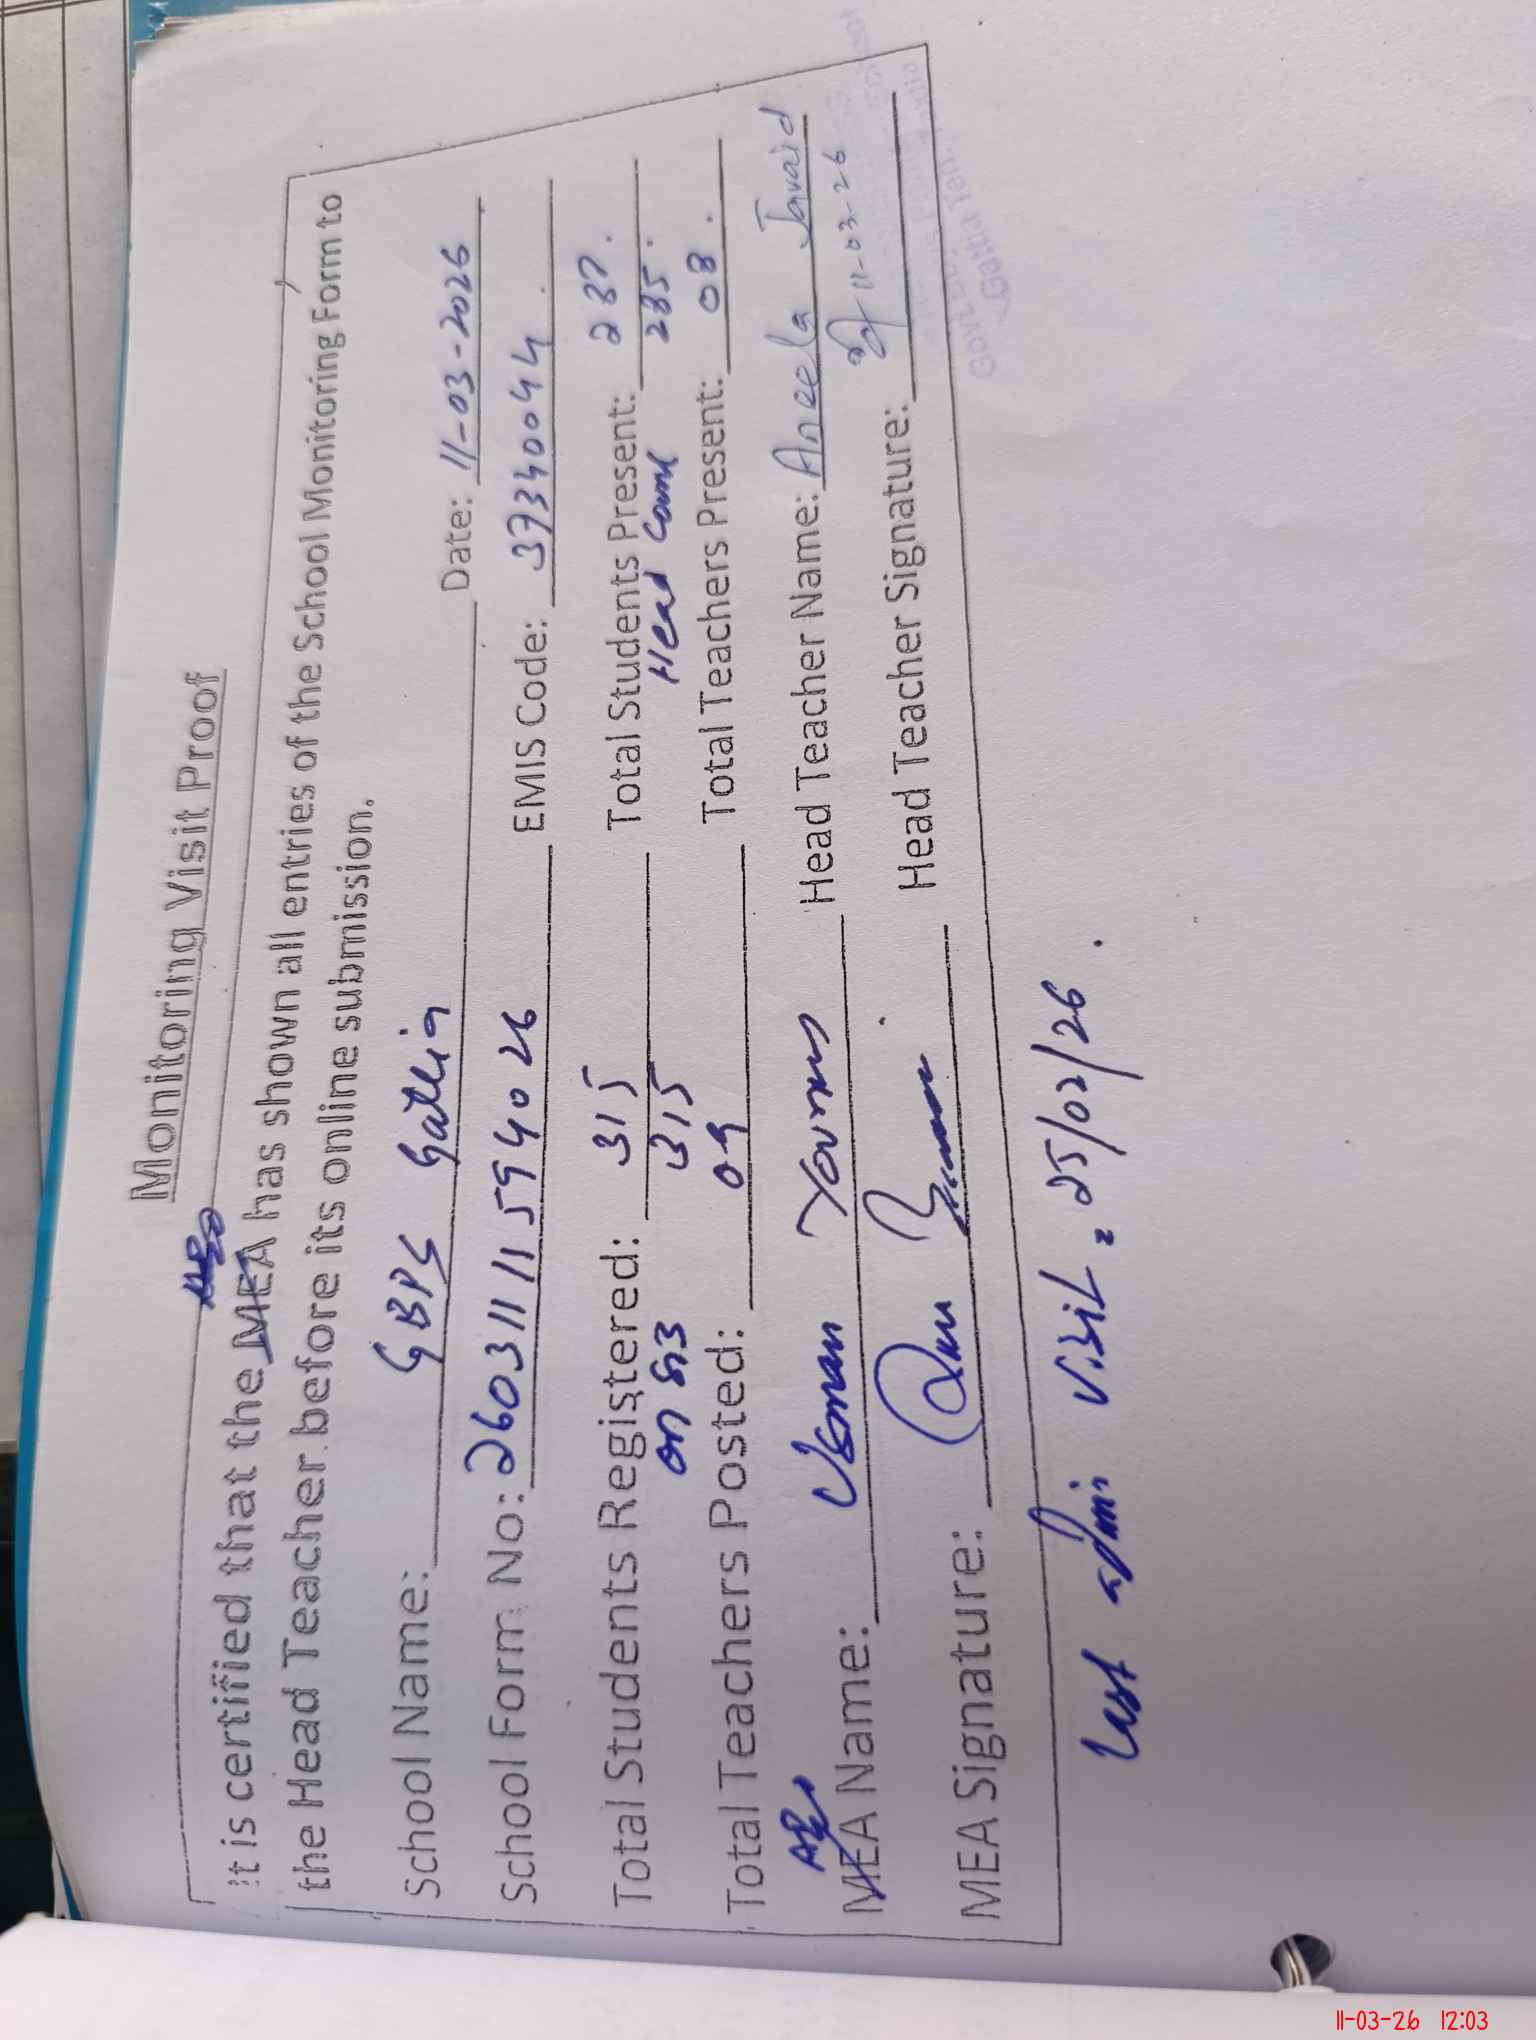 Monitoring Visit Proof
It is certified that the MEA has shown all entries of the School Monitoring Form to
the Head Teacher before its online submission.
School Name: GBPS Gattia Date: 11-03-2026
School Form No: 26031111594026 EMIS Code: 37340044
Total Students Registered: 315 Total Students Present: 287
on 315 Head Count 285
Total Teachers Posted: 09 Total Teachers Present: 08
MEA Name: Usman Younus Head Teacher Name: Aneela Javaid
11-03-26
MEA Signature: Head Teacher Signature:
Last Admin Visit = 25/02/26
11-03-26 12:03